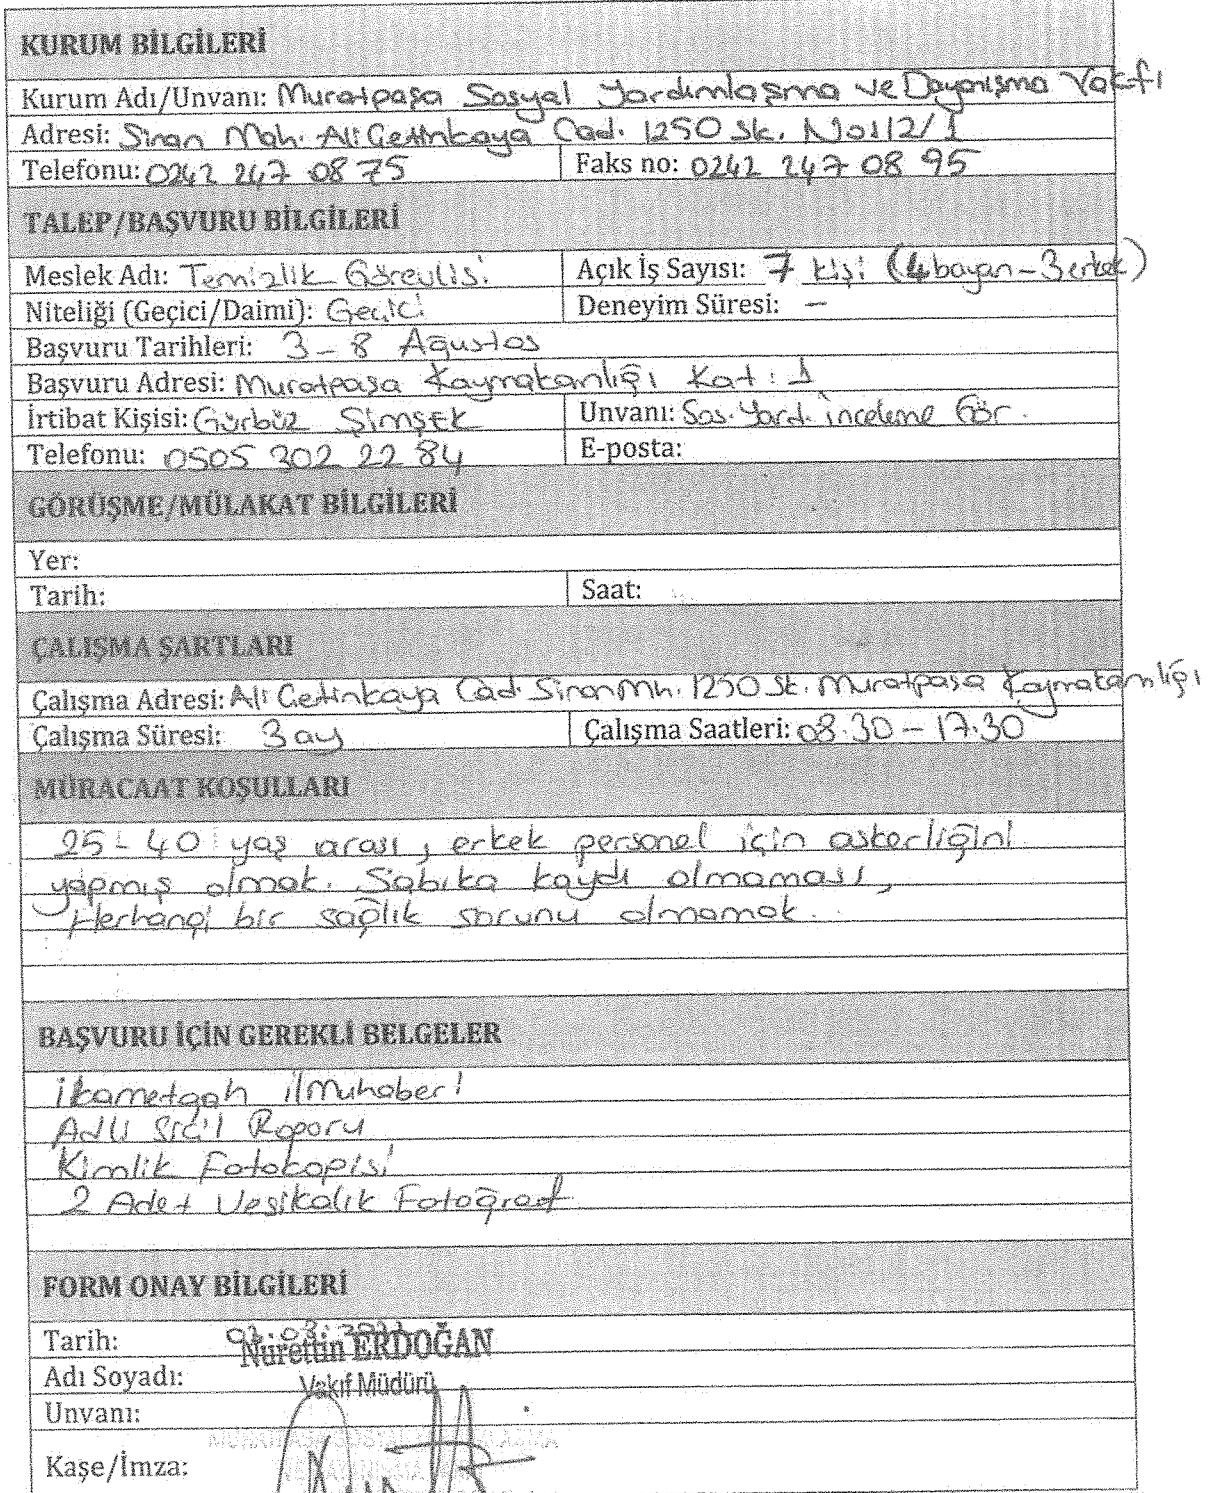 KURUM BİLGİLERİ
Kurum Adı/Unvanı: Muratpaşa Sosyal Yardımlaşma ve Dayanışma Vakfı
Adresi: Sinan Mah. Ali Çetinkaya Cad. 1250 Sk. No:12/1
Telefonu: 0242 247 08 75 Faks no: 0242 247 08 95
TALEP/BAŞVURU BİLGİLERİ
Meslek Adı: Temizlik Görevlisi Açık İş Sayısı: 7 kişi (4 bayan - 3 erkek)
Niteliği (Geçici/Daimi): Geçici Deneyim Süresi: -
Başvuru Tarihleri: 3 - 8 Ağustos
Başvuru Adresi: Muratpaşa Kaymakamlığı Kat: 1
İrtibat Kişisi: Gürbüz ŞİMŞEK Unvanı: Sos. Yard. İnceleme Gör.
Telefonu: 0505 302 22 84 E-posta:
GÖRÜŞME/MÜLAKAT BİLGİLERİ
Yer:
Tarih: Saat:
ÇALIŞMA ŞARTLARI
Çalışma Adresi: Ali Çetinkaya Cad. Sinan Mh. 1250 Sk. Muratpaşa Kaymakamlığı
Çalışma Süresi: 3 ay Çalışma Saatleri: 08.30 - 17.30
MÜRACAAT KOŞULLARI
25 - 40 yaş arası, erkek personel için askerliğini
yapmış olmak. Sabıka kaydı olmaması,
Herhangi bir sağlık sorunu olmamak.
BAŞVURU İÇİN GEREKLİ BELGELER
İkametgah ilmuhaberi
Adli Sicil Raporu
Kimlik Fotokopisi
2 Adet Vesikalık Fotoğraf
FORM ONAY BİLGİLERİ
Tarih:
Nurettin ERDOĞAN
Adı Soyadı:
Vakıf Müdürü
Unvanı:
Kaşe/İmza: